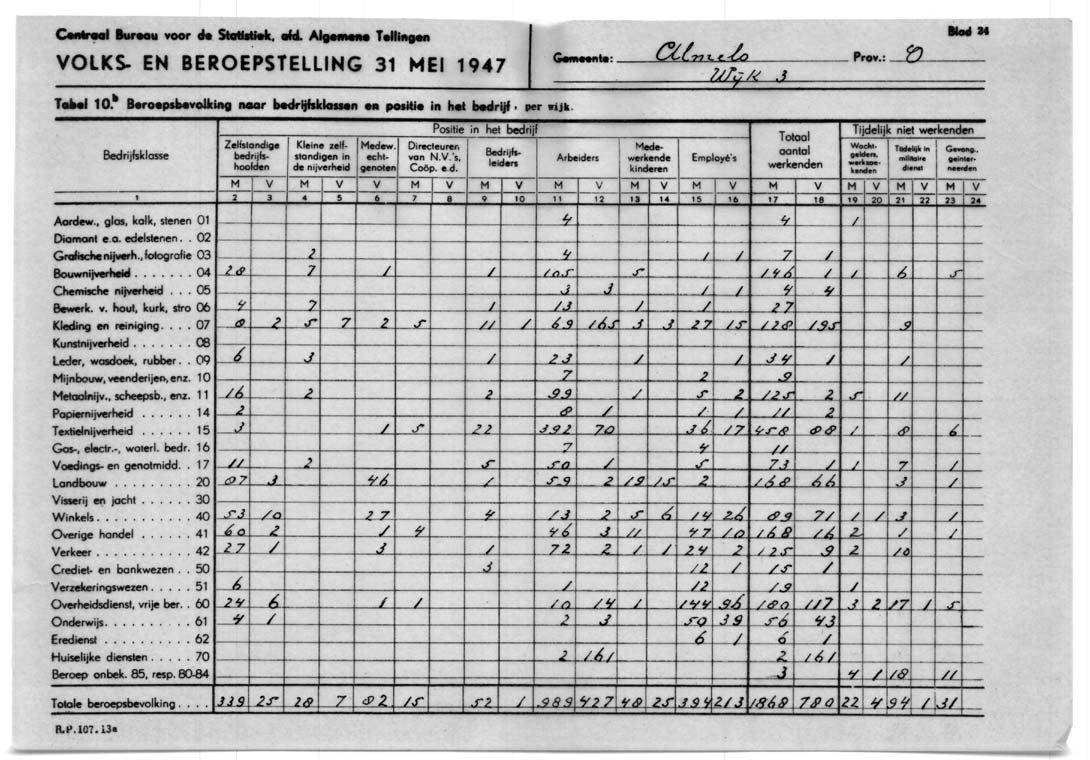 Centraal Bureau voor de Statistiek, afd. Algemene Tellingen
Blad 24
VOLKS- EN BEROEPSTELLING 31 MEI 1947
Gemeente: Almelo
Prov.: O
Wijk 3
Tabel 10.b Beroepsbevolking naar bedrijfsklassen en positie in het bedrijf, per wijk.
Bedrijfsklasse
Positie in het bedrijf
Totaal aantal werkenden
Tijdelijk niet werkenden
Zelfstandige bedrijfs-hoofden
Kleine zelf-standigen in de nijverheid
Medew. echt-genoten
Directeuren van N.V.'s, Coöp. e.d.
Bedrijfs-leiders
Arbeiders
Mede-werkende kinderen
Employé's
Wacht-gelders, werkzoe-kenden
Tijdelijk in militaire dienst
Gevang., geinter-neerden
M V M V V M V M V M V M V M V M V M V M V M V
1 2 3 4 5 6 7 8 9 10 11 12 13 14 15 16 17 18 19 20 21 22 23 24
Aardew., glas, kalk, stenen 01 4 4 1
Diamant e.a. edelstenen . . 02
Grafische nijverh., fotografie 03 2 4 1 1 7 1
Bouwnijverheid . . . . . . . 04 28 7 1 1 105 5 146 1 1 6 5
Chemische nijverheid . . . 05 3 3 1 1 4 4
Bewerk. v. hout, kurk, stro 06 4 7 1 13 1 1 27
Kleding en reiniging. . . . 07 8 2 5 7 2 5 11 1 69 165 3 3 27 15 128 195 9
Kunstnijverheid . . . . . . 08
Leder, wasdoek, rubber. . 09 6 3 1 23 1 1 34 1 1
Mijnbouw, veenderijen, enz. 10 7 2 9
Metaalnijv., scheepsb., enz. 11 16 2 2 99 1 5 2 125 2 5 11
Papiernijverheid . . . . . . 14 2 8 1 1 1 11 2
Textielnijverheid . . . . . . 15 3 1 5 22 392 70 36 17 458 88 1 8 6
Gas-, electr.-, waterl. bedr. 16 7 4 11
Voedings- en genotmidd. . 17 11 2 5 50 1 5 73 1 1 7 1
Landbouw . . . . . . . . . 20 87 3 46 1 59 2 19 15 2 168 66 3 1
Visserij en jacht . . . . . . 30
Winkels . . . . . . . . . . . 40 53 10 27 4 13 2 5 6 14 26 89 71 1 1 3 1
Overige handel . . . . . . . 41 60 2 1 4 46 3 11 47 10 168 16 2 1 1
Verkeer . . . . . . . . . . . 42 27 1 3 1 72 2 1 1 24 2 125 9 2 10
Crediet- en bankwezen . . 50 3 12 1 15 1
Verzekeringswezen . . . . . 51 6 1 12 19 1
Overheidsdienst, vrije ber. . 60 24 6 1 1 10 14 1 144 96 180 117 3 2 17 1 5
Onderwijs. . . . . . . . . . 61 4 1 2 3 50 39 56 43
Eredienst . . . . . . . . . . 62 6 1 6 1
Huiselijke diensten . . . . . 70 2 161 2 161
Beroep onbek. 85, resp. 80-84 3 4 1 18 11
Totale beroepsbevolking . . . . 339 25 28 7 82 15 52 1 989 427 48 25 394 213 1868 780 22 4 94 1 31
R.P. 107. 13a